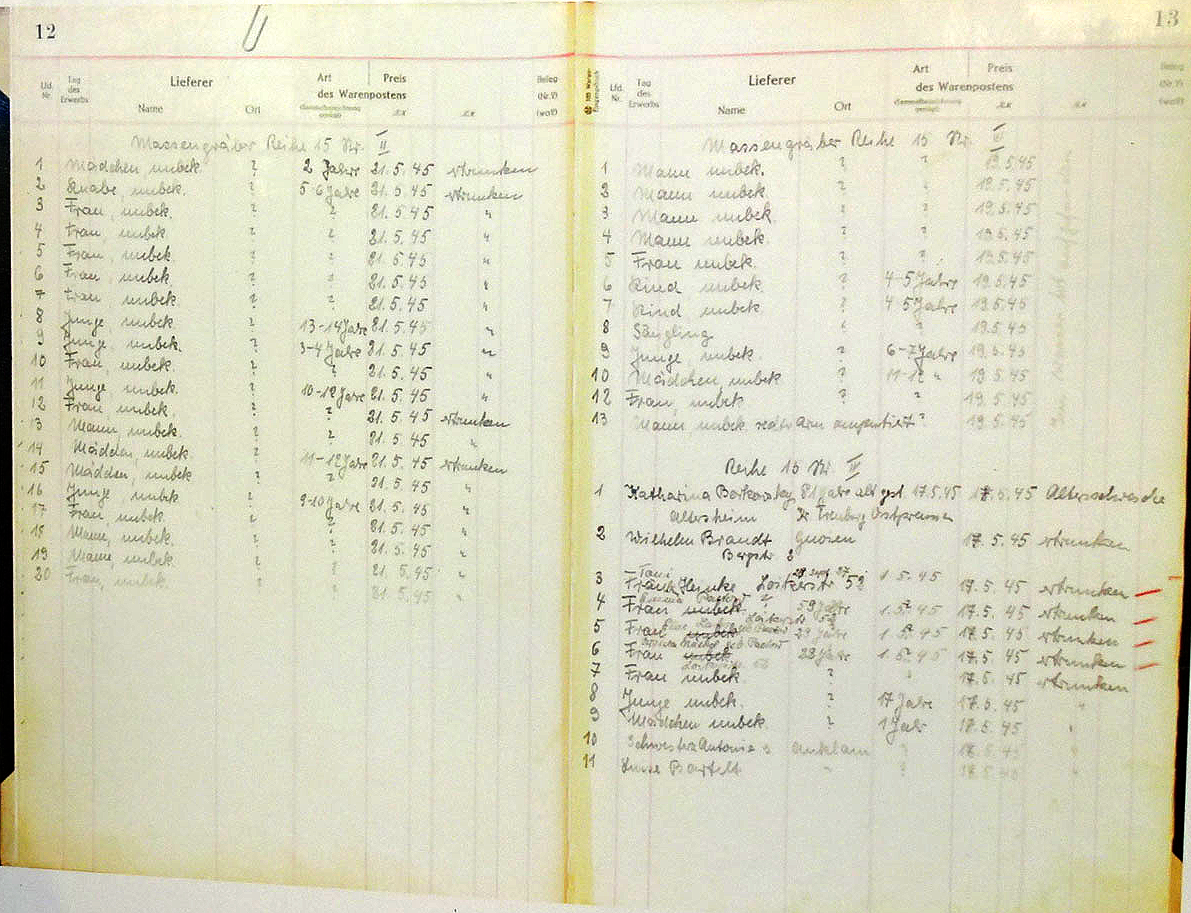 12
Lfd. Nr.
Tag des Erwerbs
Lieferer
Name
Ort
Art
des Warenpostens
Preis
Beleg
Massengräber Reihe 15 Nr. II
1 Mädchen unbek. ? 2 Jahre 21.5.45 ertrunken
2 Knabe, unbek. ? 5-6 Jahre 21.5.45 ertrunken
3 Frau, unbek. ? ? 21.5.45 "
4 Frau, unbek ? ? 21.5.45 "
5 Frau, unbek. ? ? 21.5.45 "
6 Frau, unbek. ? ? 21.5.45 "
7 Frau unbek ? ? 21.5.45 "
8 Junge unbek. ? 13-14 Jahre 21.5.45 "
9 Junge, unbek. ? 3-4 Jahre 21.5.45 "
10 Frau, unbek. ? ? 21.5.45 "
11 Junge unbek. ? 10-12 Jahre 21.5.45 "
12 Frau unbek. ? ? 21.5.45 ertrunken
13 Mann, unbek. ? ? 21.5.45 "
14 Mädchen, unbek. ? 11-12 Jahre 21.5.45 ertrunken
15 Mädchen, unbek ? ? 21.5.45 "
16 Junge, unbek ? 9-10 Jahre 21.5.45 "
17 Frau, unbek. ? ? 21.5.45 "
18 Mann, unbek. ? ? 21.5.45 "
19 Mann, unbek. ? ? 21.5.45 "
20 Frau, unbek. ? ? 21.5.45 "
13
Lfd. Nr.
Tag des Erwerbs
Lieferer
Name
Ort
Art
des Warenpostens
Preis
Massengräber Reihe 15 Nr.
1 Mann unbek. ? ? 19.5.45
2 Mann unbek. ? ? 19.5.45
3 Mann unbek. ? ? 19.5.45
4 Mann unbek. ? ? 19.5.45
5 Frau unbek. ? ? 19.5.45
6 Kind unbek ? 4-5 Jahre 19.5.45
7 Kind unbek ? 4-5 Jahre 19.5.45
8 Säugling ? 19.5.45
9 Junge, unbek. ? 6-7 Jahre 19.5.45
10 Mädchen, unbek ? 11-12 " 19.5.45
12 Frau, unbek ? ? 19.5.45
13 Mann, unbek. rechter Arm amputiert ? 19.5.45
Reihe 15 Nr.
1 Katharina 81 Jahre alt gest. 17.5.45 17.5.45 Altersschwäche
Altersheim Ostpreussen
2 Wilhelm Brandt Gnoien 17.5.45 ertrunken
Bergstr 8
3 Frau 52 1.5.45 17.5.45 ertrunken
4 Frau unbek. 59 Jahre 1.5.45 17.5.45 ertrunken
5 Frau unbek 29 Jahre 1.5.45 17.5.45 ertrunken
6 Frau unbek 28 Jahre 1.5.45 17.5.45 ertrunken
7 Frau unbek. ? " 17.5.45 ertrunken
8 Junge unbek. ? 17 Jahre 17.5.45 "
9 Mädchen unbek. ? 1 Jahr 17.5.45 "
10 Schwester Antonie Anklam ? 17.5.45 "
11 Luise Bartelt " ? 17.5.45 "